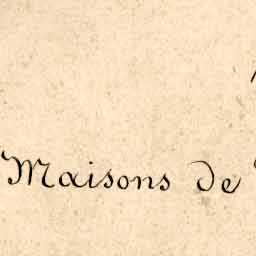 Maisons de